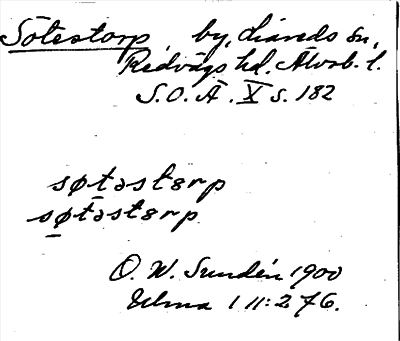 Sötestorp by, Liareds sn,
Redvägs hd. Älvsb. l.
S.O.Ä. X s. 182
søtəstørp
søtəstørp
O. W. Sundén 1900
Ulma 111:276.